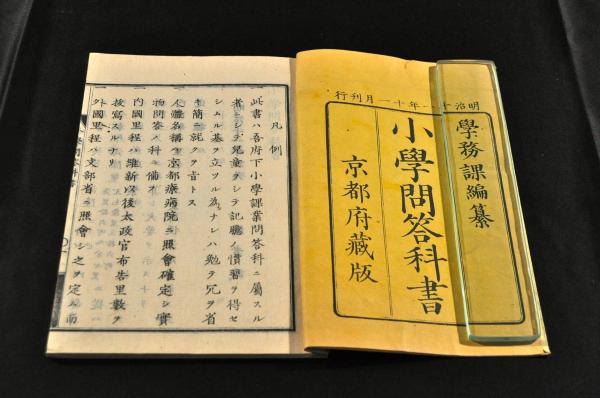 明治十一年十一月刊行
學務課編纂
小學問答科書
京都府藏版
凡例
此書ハ吾府下小學課業問答科ニ屬スル
者ニシテ兒童ヲシテ記臆ノ慣習ヲ得セ
シムル基ヲ立ツル為ナレハ勉テ冗ヲ省
キ簡ニ就クヲ旨トス
一人體名稱ハ京都療病院ニ照會確定シ實
物問答ノ科ニ備フ
一内國里程ハ維新以後太政官布告里數ヲ
寫スルナリ
一外國里程ハ文部省ニ照會シ之ヲ定ム南